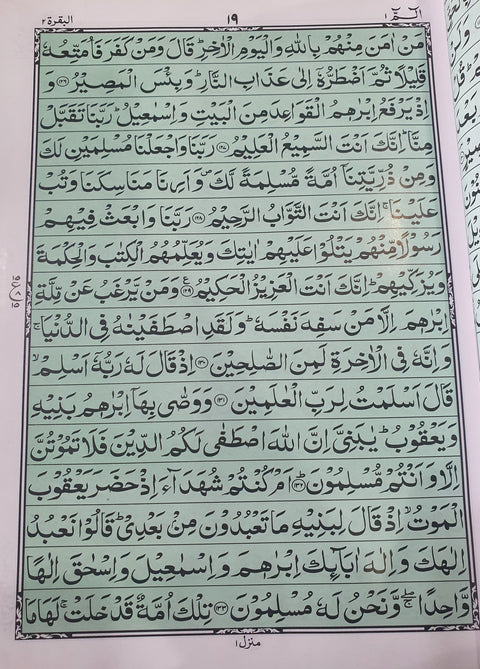 البقرة ٢
١٩
الٓمّٓ ١
مَنْ اٰمَنَ مِنْهُمْ بِاللّٰهِ وَالْيَوْمِ الْاٰخِرِ ؕ قَالَ وَمَنْ كَفَرَ فَاُمَتِّعُهٗ
قَلِيْلًا ثُمَّ اَضْطَرُّهٗۤ اِلٰى عَذَابِ النَّارِ ؕ وَبِئْسَ الْمَصِيْرُ ﴿١٢٦﴾ وَ
اِذْ يَرْفَعُ اِبْرٰهٖمُ الْقَوَاعِدَ مِنَ الْبَيْتِ وَاِسْمٰعِيْلُ ؕ رَبَّنَا تَقَبَّلْ
مِنَّا ؕ اِنَّكَ اَنْتَ السَّمِيْعُ الْعَلِيْمُ ﴿١٢٧﴾ رَبَّنَا وَاجْعَلْنَا مُسْلِمَيْنِ لَكَ
وَمِنْ ذُرِّيَّتِنَاۤ اُمَّةً مُّسْلِمَةً لَّكَ ۪ وَاَرِنَا مَنَاسِكَنَا وَتُبْ
عَلَيْنَا ۚ اِنَّكَ اَنْتَ التَّوَّابُ الرَّحِيْمُ ﴿١٢٨﴾ رَبَّنَا وَابْعَثْ فِيْهِمْ
رَسُوْلًا مِّنْهُمْ يَتْلُوْا عَلَيْهِمْ اٰيٰتِكَ وَيُعَلِّمُهُمُ الْكِتٰبَ وَالْحِكْمَةَ
وَيُزَكِّيْهِمْ ؕ اِنَّكَ اَنْتَ الْعَزِيْزُ الْحَكِيْمُ ﴿١٢٩﴾ وَمَنْ يَّرْغَبُ عَنْ مِّلَّةِ
اِبْرٰهٖمَ اِلَّا مَنْ سَفِهَ نَفْسَهٗ ؕ وَلَقَدِ اصْطَفَيْنٰهُ فِى الدُّنْيَا ۚ
وَاِنَّهٗ فِى الْاٰخِرَةِ لَمِنَ الصّٰلِحِيْنَ ﴿١٣٠﴾ اِذْ قَالَ لَهٗ رَبُّهٗۤ اَسْلِمْ ۙ
قَالَ اَسْلَمْتُ لِرَبِّ الْعٰلَمِيْنَ ﴿١٣١﴾ وَوَصّٰى بِهَاۤ اِبْرٰهٖمُ بَنِيْهِ
وَيَعْقُوْبُ ؕ يٰبَنِىَّ اِنَّ اللّٰهَ اصْطَفٰى لَكُمُ الدِّيْنَ فَلَا تَمُوْتُنَّ
اِلَّا وَاَنْتُمْ مُّسْلِمُوْنَ ﴿١٣٢﴾ اَمْ كُنْتُمْ شُهَدَآءَ اِذْ حَضَرَ يَعْقُوْبَ
الْمَوْتُ ۙ اِذْ قَالَ لِبَنِيْهِ مَا تَعْبُدُوْنَ مِنْ بَعْدِىْ ؕ قَالُوْا نَعْبُدُ
اِلٰهَكَ وَاِلٰهَ اٰبَآئِكَ اِبْرٰهٖمَ وَاِسْمٰعِيْلَ وَاِسْحٰقَ اِلٰهًا
وَّاحِدًا ۖۚ وَّنَحْنُ لَهٗ مُسْلِمُوْنَ ﴿١٣٣﴾ تِلْكَ اُمَّةٌ قَدْ خَلَتْ ۚ لَهَا مَا
منزل ١